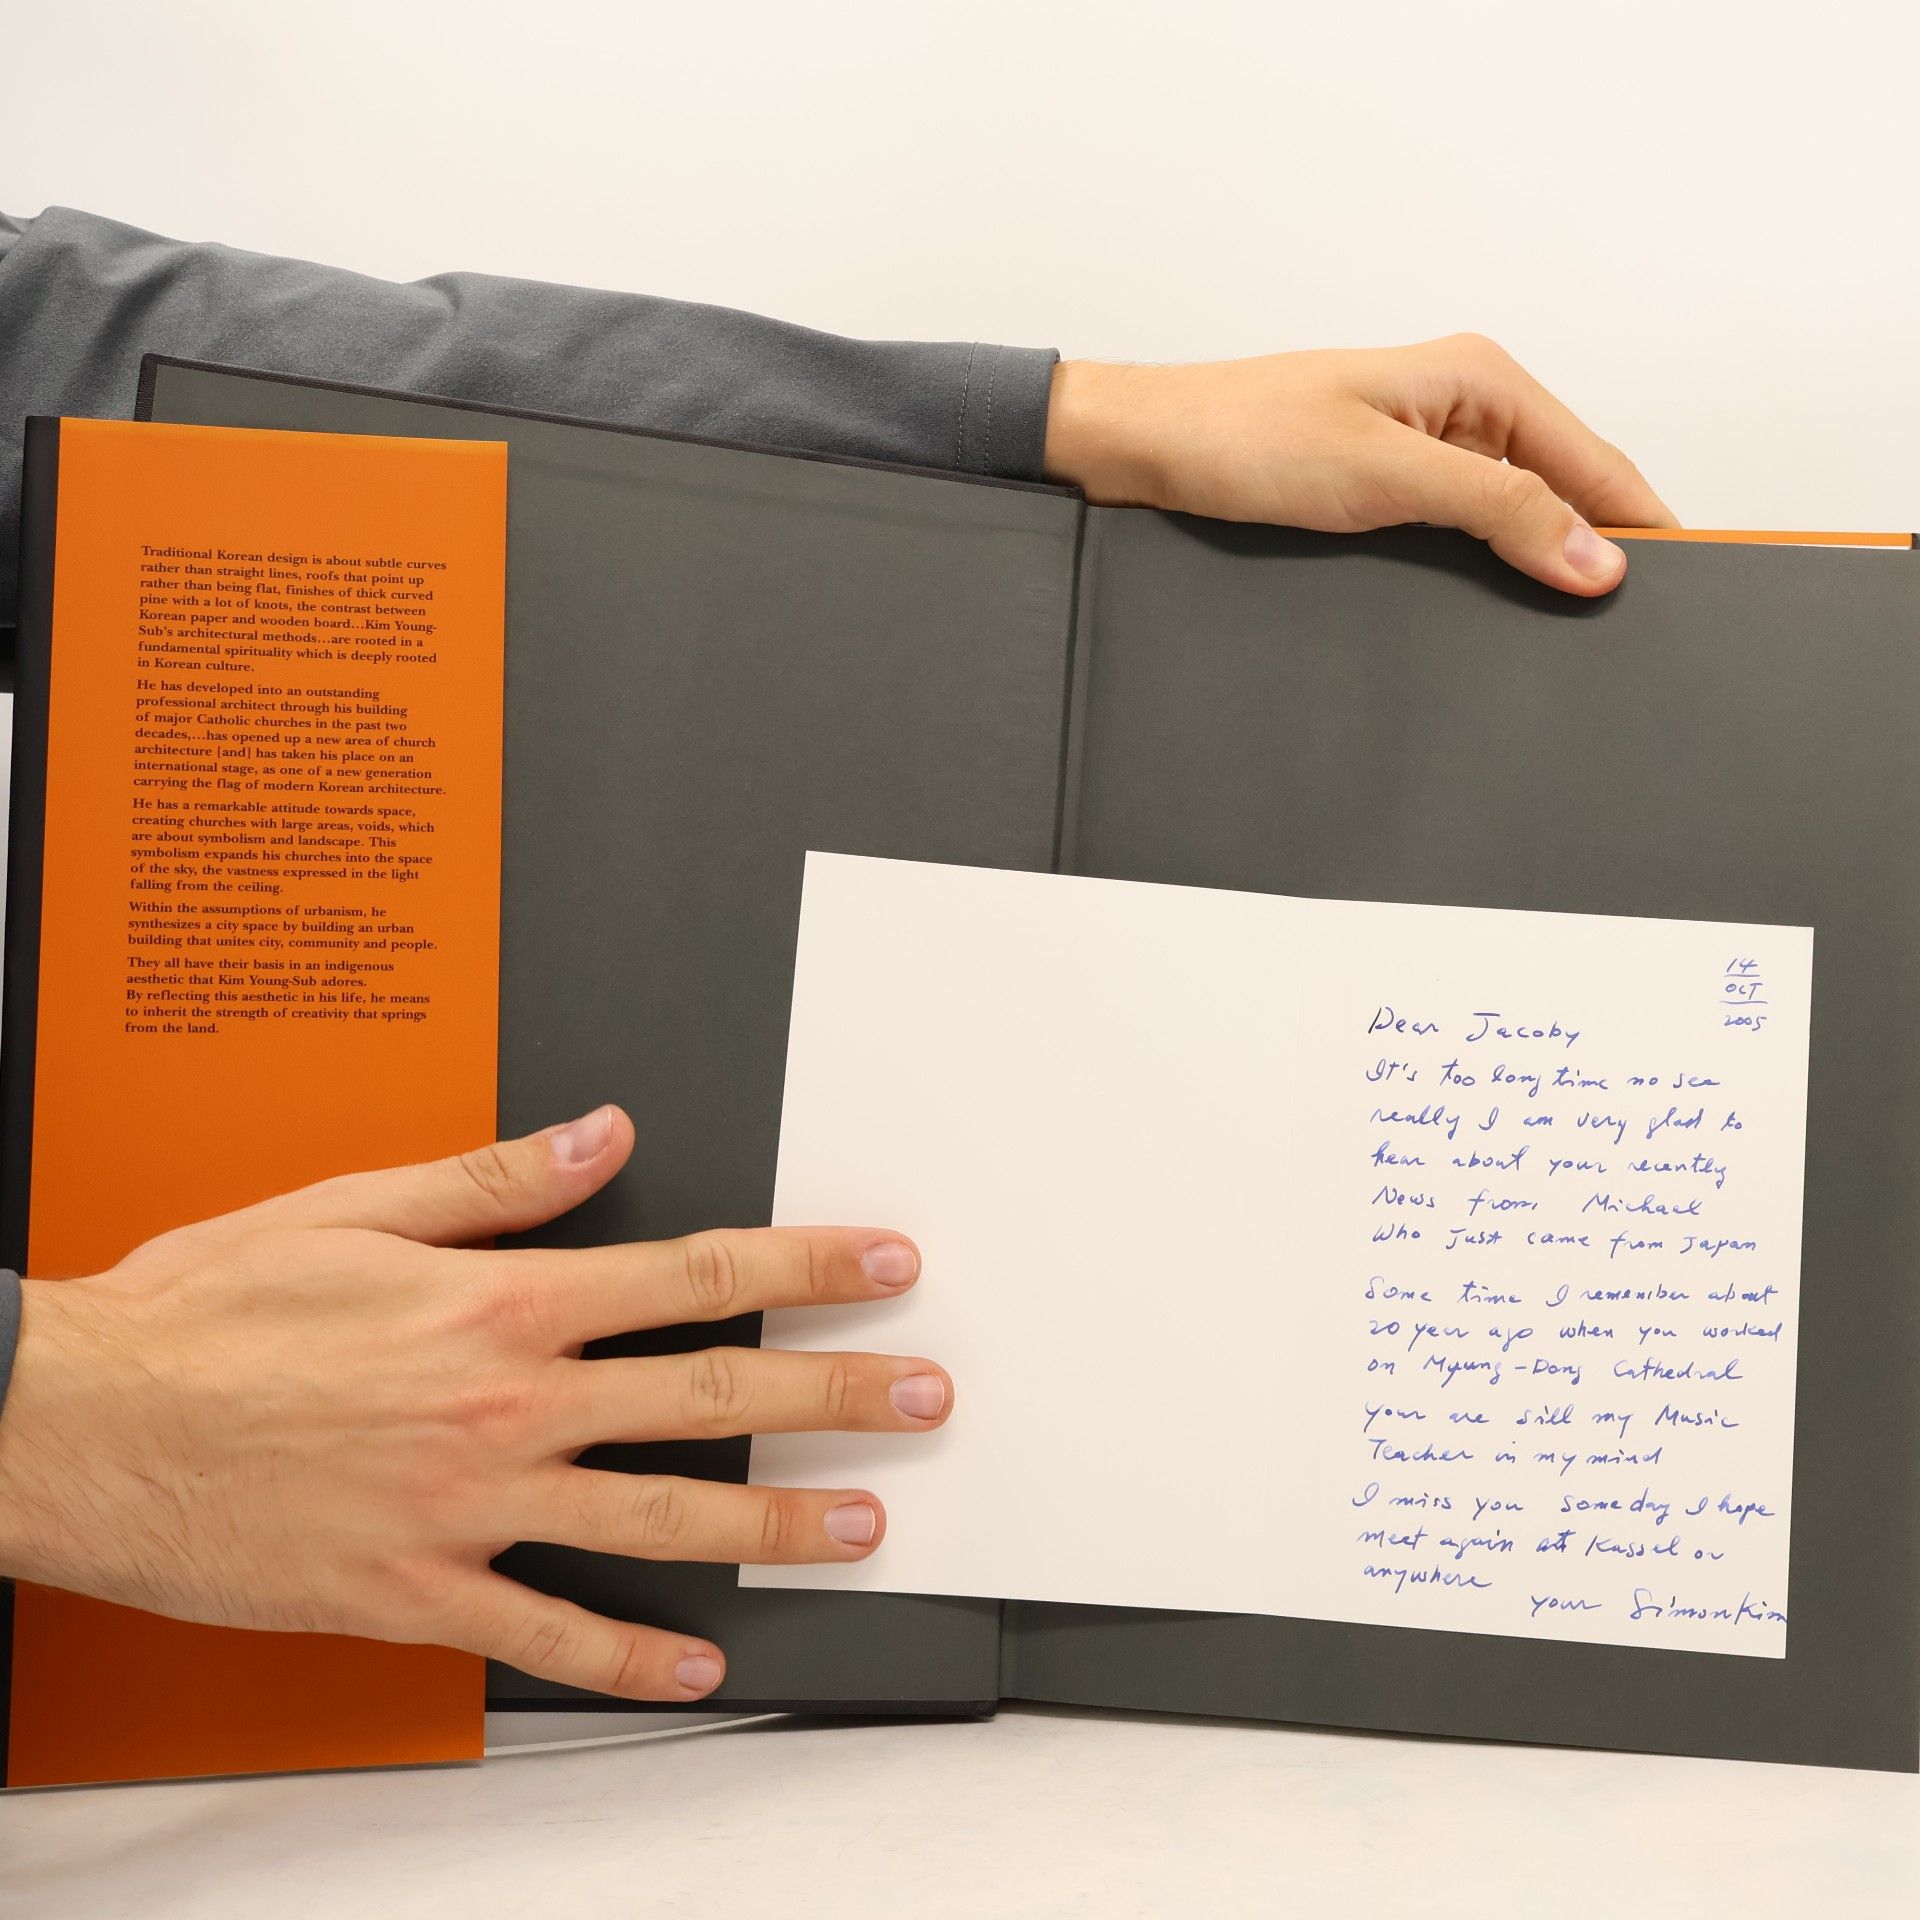 Traditional Korean design is about subtle curves
rather than straight lines, roofs that point up
rather than being flat, finishes of thick curved
pine with a lot of knots, the contrast between
Korean paper and wooden board...Kim Young-
Sub's architectural methods...are rooted in a
fundamental spirituality which is deeply rooted
in Korean culture.
He has developed into an outstanding
professional architect through his building
of major Catholic churches in the past two
decades,...has opened up a new area of church
architecture [and] has taken his place on an
international stage, as one of a new generation
carrying the flag of modern Korean architecture.
He has a remarkable attitude towards space,
creating churches with large areas, voids, which
are about symbolism and landscape. This
symbolism expands his churches into the space
of the sky, the vastness expressed in the light
falling from the ceiling.
Within the assumptions of urbanism, he
synthesizes a city space by building an urban
building that unites city, community and people.
They all have their basis in an indigenous
aesthetic that Kim Young-Sub adores.
By reflecting this aesthetic in his life, he means
to inherit the strength of creativity that springs
from the land.
14
OCT
2005
Dear Jacoby
It's too long time no see
really I am very glad to
hear about your recently
News from Michael
Who Just came from Japan
Some time I remember about
20 year ago when you worked
on Myung-Dong Cathedral
your are sill my Music
Teacher in my mind
I miss you some day I hope
meet again at Kassel or
anywhere
your Simon Kim